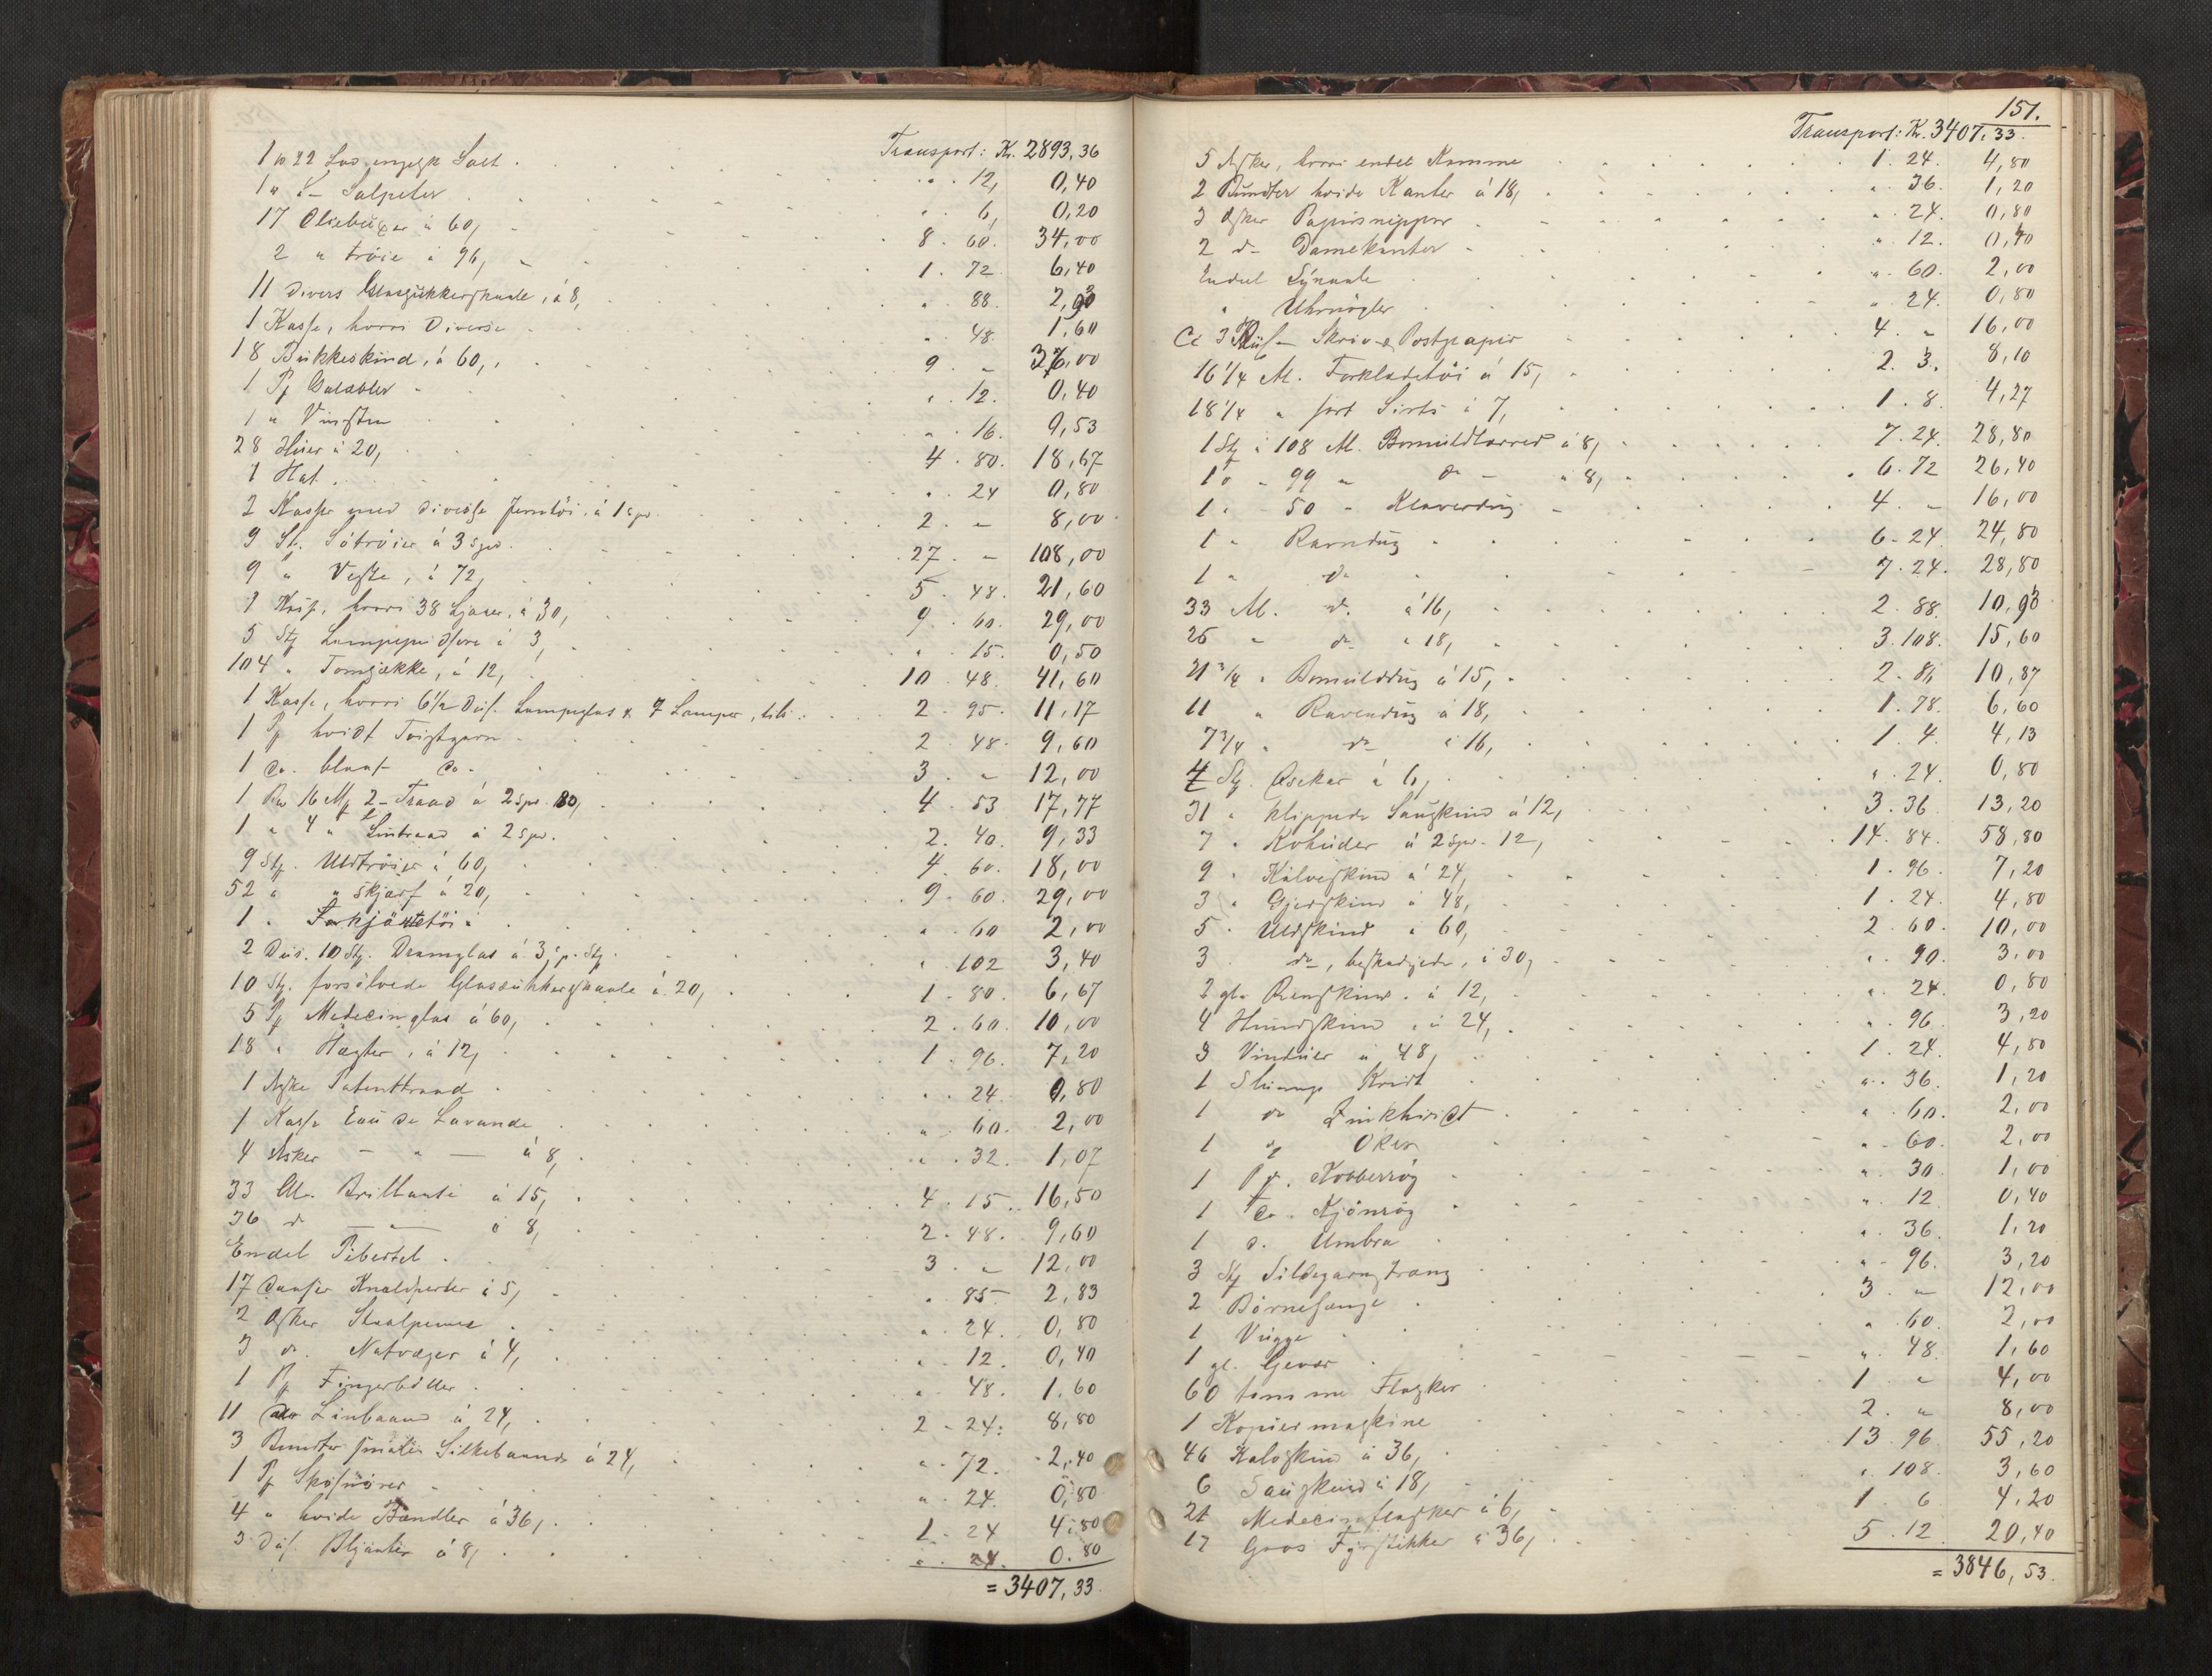 Transport: Kr. 2893,36
1 W 22 Lod engelsk Salt . . . 12, 0,40
1 " d- Salpeter . . . 6, 0,20
17 Oliebuxer á 60, . . . 8. 60. 34,00
2 " trøie á 96, . . . 1. 72 6,40
11 divers Glassukkerskaale, á 8, . . . 88. 2,93
1 Kasse, hvori Diverse . . . 48. 1,60
18 Bukkeskind, á 60, . . . 9. " 36,00
1 Pk Galæbler . . . 12. 0,40
1 " Vinsten . . . 16. 0,53
28 Huer á 20, . . . 4. 80. 18,67
1 Hat . . . 24 0,80
2 Kasser med diverse Jerntöi, á 1 spd. . . . 2. " 8,00
9 St. Sötröier á 3 spd. . . . 27. " 108,00
9 " Veste, á 72, . . . 5. 48. 21,60
1 Kasse, hvori 38 Ljaaer, á 30, . . . 9. 60. 29,00
5 Stk Lampepudsere á 3, . . . 15. 0,50
104 " Tomsække, á 12, . . . 10. 48. 41,60
1 Kasse, hvori 6 1/2 Dus. Lampeglas & 7 Lamper, . . . 2. 95. 11,17
1 Pk hvidt Tvistgarn . . . 2. 48. 9,60
1 do. blaat do. . . . 3. " 12,00
1 16 Mk 2-Traad á 2 spd. 80, . . . 4. 53 17,77
1 " 4 " Lintraad á 2 spd. . . . 2. 40. 9,33
9 Stk. Uldtröier á 60, . . . 4. 60. 18,00
52 " " skjærf á 20, . . . 9. 60. 29,00
1 " . . . 60 2,00
2 Dus. 10 Stk. Dramglas á 3, p. Stk. . . . 102 3,40
10 Stk. forsölvede Glassukkerskaale á 20, . . . 1. 80. 6,67
5 Pk Medecinglas á 60, . . . 2. 60. 10,00
18 " Hægter, á 12, . . . 1. 96. 7,20
1 Æske Patenttraad . . . 24. 0,80
1 Kasse Eau de Lavande . . . 60. 2,00
4 Æsker - " - á 8, . . . 32. 1,07
33 Al. Brillanti á 15, . . . 4. 15. 16,50
36 d - " - á 8, . . . 2. 48. 9,60
Endel Pibestel . . . 3. " 12,00
17 Knaldperler á 5, . . . 85 2,83
2 Æsker Staalpenne . . . 24. 0,80
3 do. Natvæger á 4, . . . 12. 0,40
1 Pk Fingerböller . . . 48. 1,60
11 do Linbaand á 24, . . . 2. 24. 8,80
3 Bundter smale Silkebaand á 24, . . . 72. 2,40
1 Pk Skosnörer . . . 24. 0,80
4 " hvide Bændler á 36, . . . 1. 24 4,80
3 Dus. Blyanter á 8, . . . 24. 0.80
= 3407,33.
151.
Transport: Kr. 3407,33.
5 Æsker, hvori endel Kamme . . . 1. 24. 4,80
2 Bundter hvide Kanter á 18, . . . 36. 1,20
3 Æsker Papirsnipper . . . 24. 0,80
2 d- Damekanter . . . 12. 0,40
Endel Synaale . . . 60. 2,00
" Uhrnögler . . . 24. 0,80
Ca 3 Riis Skriv- & Postpapir . . . 4. " 16,00
16 1/4 Al. Forklædetöi á 15, . . . 2. 3. 8,10
18 1/4 " sort Sirts á 7, . . . 1. 8. 4,27
1 Stk á 108 Al. Bomuldlærred á 8, . . . 7. 24. 28,80
1 " " 99 " do - " 8, . . . 6. 72 26,40
1 " 50 " Klaverdug . . . 4. " 16,00
1 " Ravndug . . . 6. 24 24,80
1 " do . . . 7. 24. 28,80
33 Al. d. á 16, . . . 2. 88. 10,93
26 " do " 18, . . . 3. 108. 15,60
21 3/4 " Bomulddug á 15, . . . 2. 86 10,87
11 " Ravendug á 18, . . . 1. 78. 6,60
7 3/4 " do á 16, . . . 1. 4. 4,13
4 Stk. á 6, . . . 24. 0,80
31 " klippede Sauskind á 12, . . . 3. 36 13,20
7 " Kohuder á 2 spd. 12, . . . 14. 84. 58,80
9 " Kalveskind á 24, . . . 1. 96. 7,20
3 " Gjedskind á 48, . . . 1. 24. 4,80
5 " Uldskind á 60, . . . 2. 60. 10,00
3 do, beskadigede, á 30, . . . 90. 3,00
2 gl. Renskind á 12, . . . 24. 0,80
4 Hundskind á 24, . . . 96. 3,20
3 Vinduer á 48, . . . 1. 24. 4,80
1 Slump Kridt . . . 36. 1,20
1 do Zinkhvidt . . . 60. 2,00
1 " Oker . . . 60. 2,00
1 Pk. Kobberrög . . . 30. 1,00
1 do. Kjönrög . . . 12 0,40
1 d. Umbra . . . 36. 1,20
3 Stk Sildegarn . . . 96. 3,20
2 Börnesenge . . . 3. " 12,00
1 Vugge . . . 60. 2,00
1 gl. Gevær . . . 48. 1,60
60 tomme Flasker . . . 1 " 4,00
1 Kopiermaskine . . . 2. " 8,00
46 Kalvskind á 36, . . . 13. 96. 55,20
6 Sauskind á 18, . . . 108. 3,60
21 Medecinflasker á 6, . . . 1. 6 4,20
17 Gros Fyrstikker á 36, . . . 5. 12. 20,40
= 3846,53.